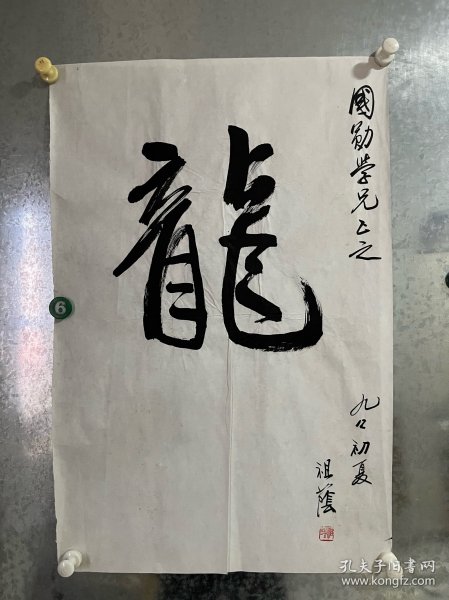 龍
國勛學兄正之
九〇初夏
祖蔭
6
孔夫子旧书网
www.kongfz.com